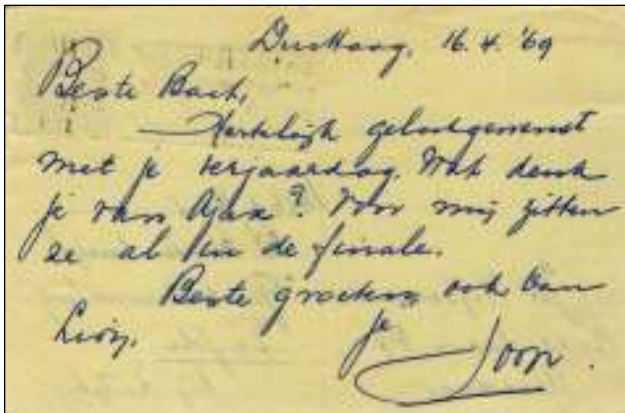 Den Haag, 16.4.'69
Beste
Hartelijk gelukgewenst
met je verjaardag. Wat denk
je van Ajax? Voor mij zitten
ze al in de finale.
Beste groeten, ook van
je
Joop.